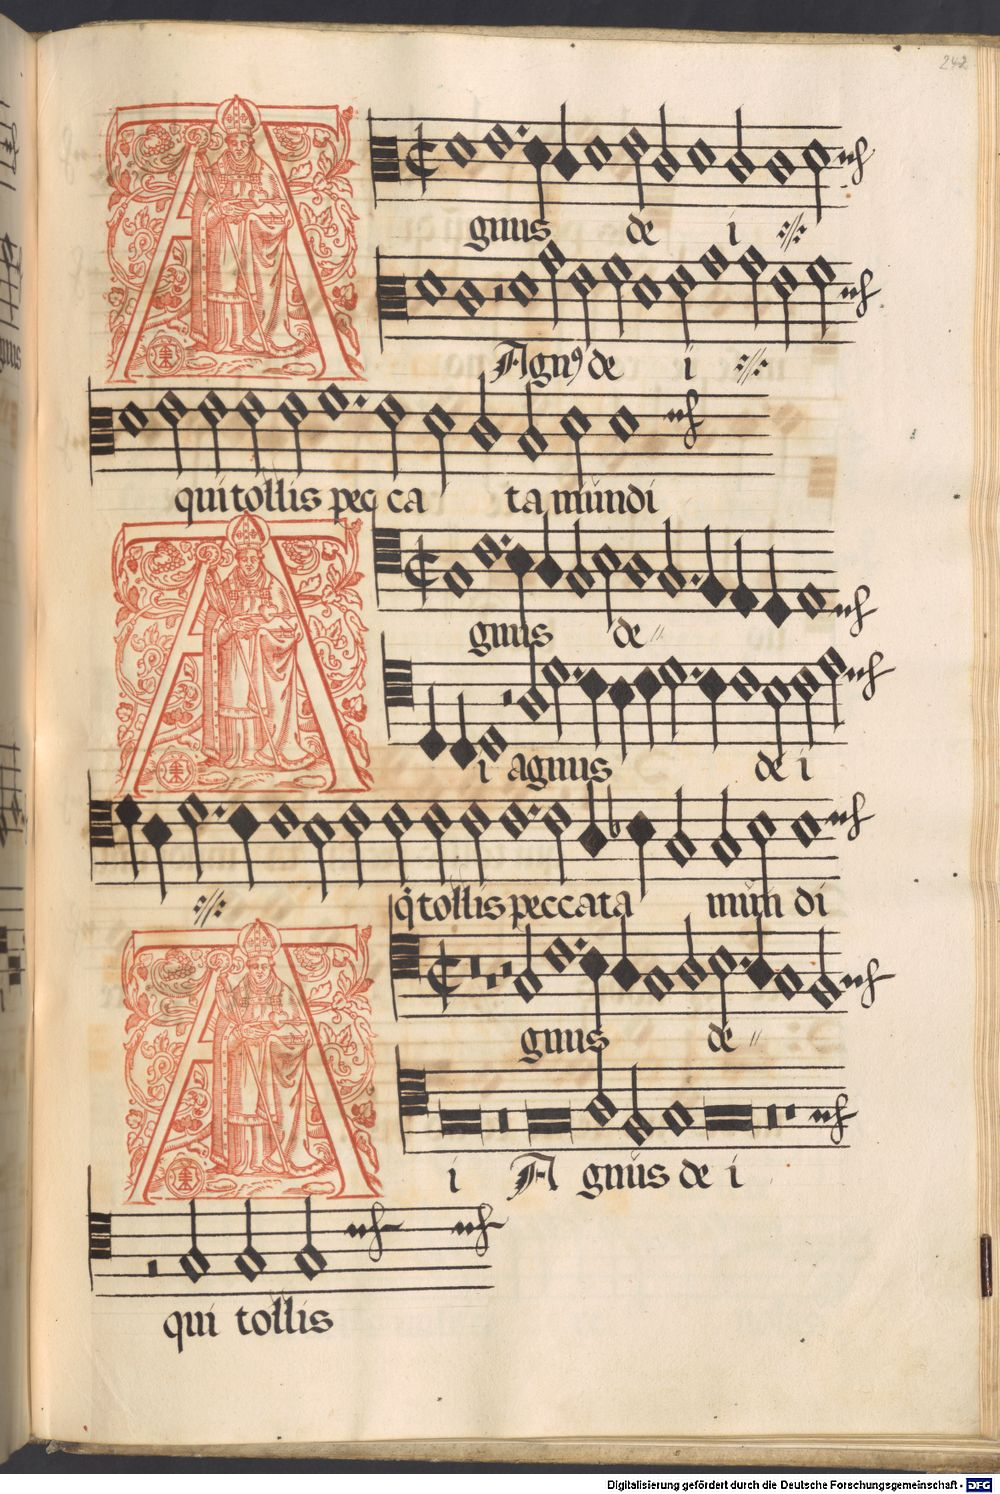 242
A gnus de i
Agnꝰ de i
qui tollis pec ca ta mundi
A gnus de
i agnus de i
q̃ tollis peccata mun di
A gnus de
i A gnus de i
qui tollis
Digitalisierung gefördert durch die Deutsche Forschungsgemeinschaft - DFG